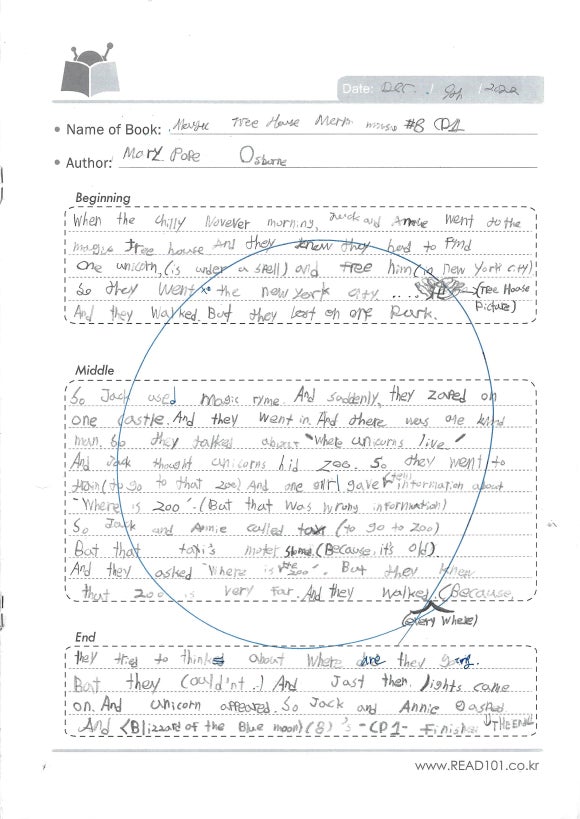 Date: DEC. / 9th / 2022
• Name of Book: Magic Tree House Merlin missio #8 CD1
• Author: Mary Pope Osborne
Beginning
When the chilly November morning, Jack and Annie went to the
magic tree house And they knew they had to find
one unicorn, (is under a spell) and free him (in new york city)
So they went to the new york city ....
(Tree House Picture)
And they walked. But they lost on one Park.
Middle
So Jack used magic ryme. And suddenly, they zaped on
one castle. And they went in. And there was one kind
man. So they talked about "Where unicorns live"
And Jack thought unicorns hid zoo. So they went to
train (to go to that zoo) And one girl gave them information about
"Where is zoo". (But that was wrong information)
So Jack and Annie called taxi (to go to zoo)
But that taxi's moter (Because, it's old)
And they asked "Where is the zoo". But they knew
that zoo is very far. And they walked. (Because,
(every where)
End
they tried to think about where are they going.
But they couldn't.) And Just then lights came
on. And unicorn appeared. So Jack and Annie Dashed
And <Blizzard of the Blue moon> (8)'s -CD1- Finishe THE END
www.READ101.co.kr